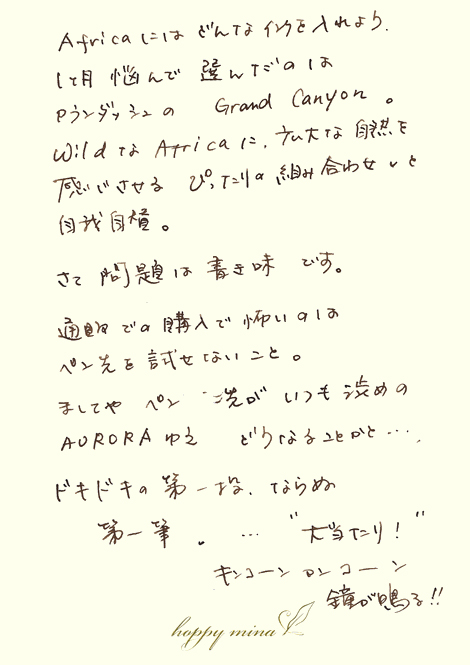 Africaには どんなインクを入れよう、
1ヶ月 悩んで 選んだのは
ローランダッシュの Grand Canyon。
WildなAfricaに、広大な自然を
感じさせる ぴったりの組み合わせ、と
自我自賛。
さて 問題は 書き味 です。
通販での購入で怖いのは
ペン先を試せないこと。
ましてや ペン先が いつも 渋めの
AURORAゆえ どうなることかと…、
ドキドキの第一投、ならぬ
第一筆。… "大当たり!"
キンコーンカンコーン
鐘が鳴る!!
happy mina